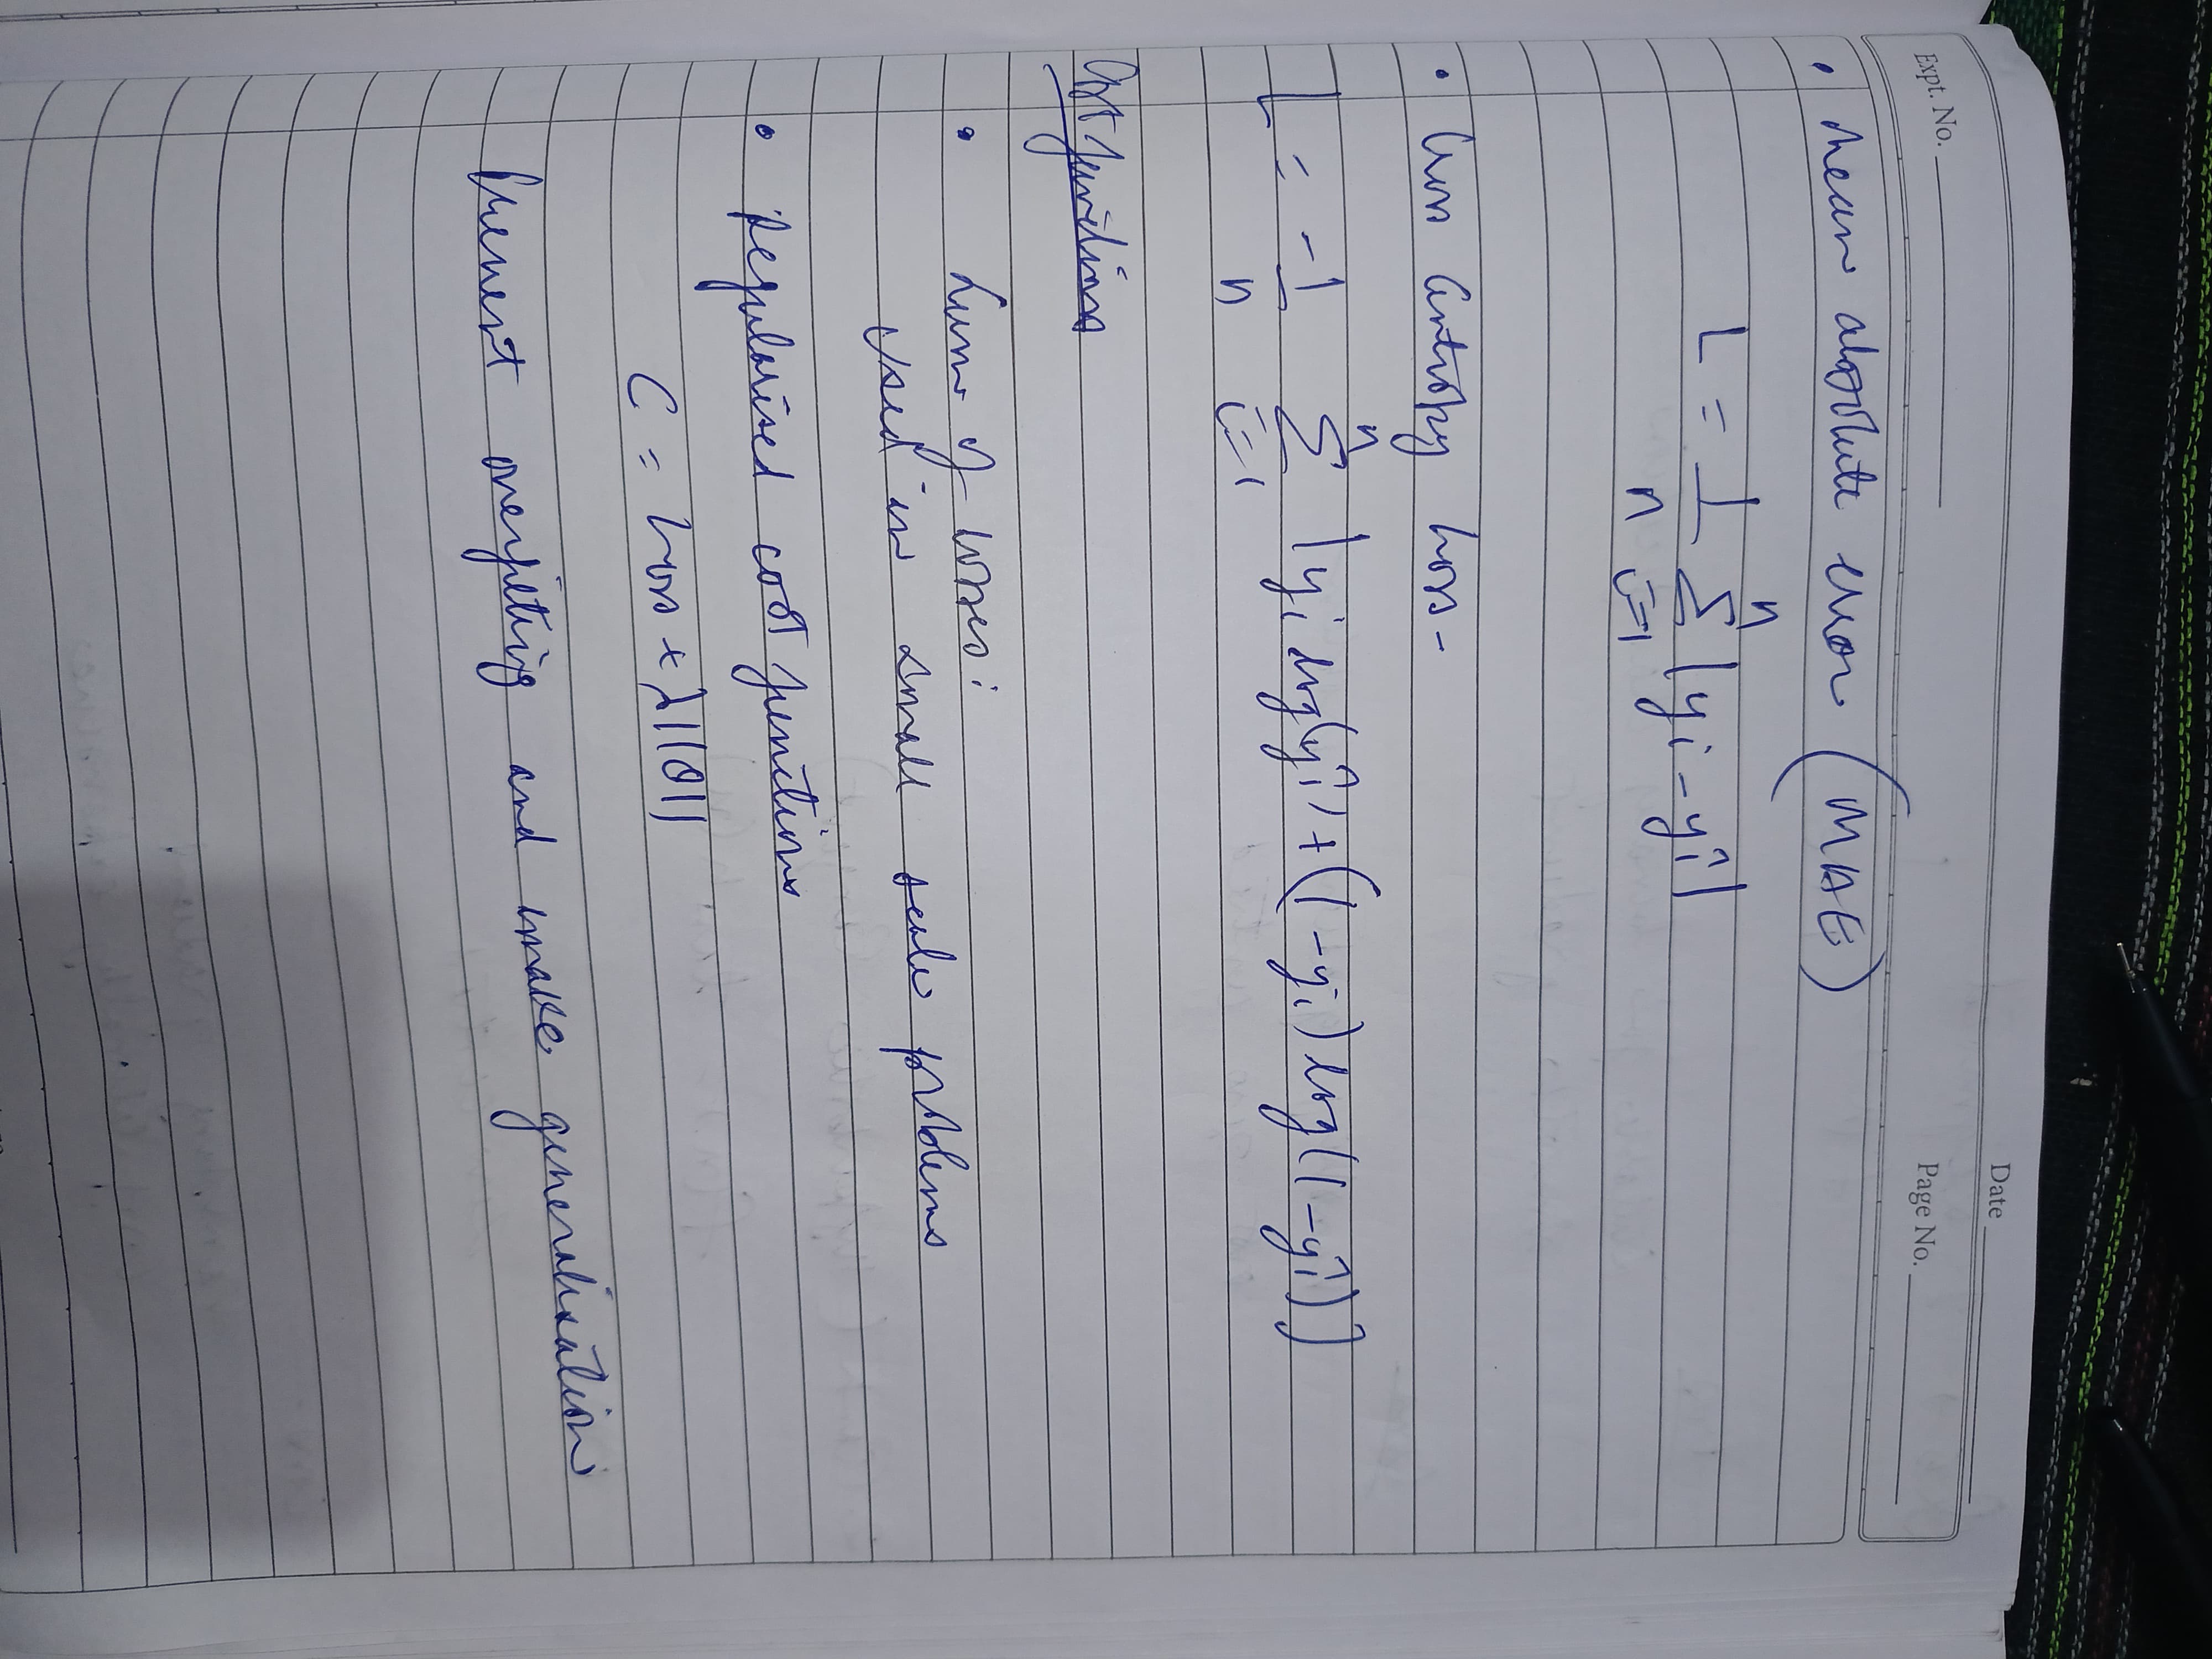 Date
Expt. No.
Page No.
• Mean absolute error (MAE)
L = 1/n Σ_{i=1}^{n} |yi - ŷi|
• Cross Entropy Loss-
L = -1/n Σ_{i=1}^{n} [yi log(ŷi) + (1-yi) log(1-ŷi)]
Cost functions
• Sum of losses:
used in small scale problems
• Regularised cost functions
C = Loss + λ||θ||
Prevent overfitting and make generalisation